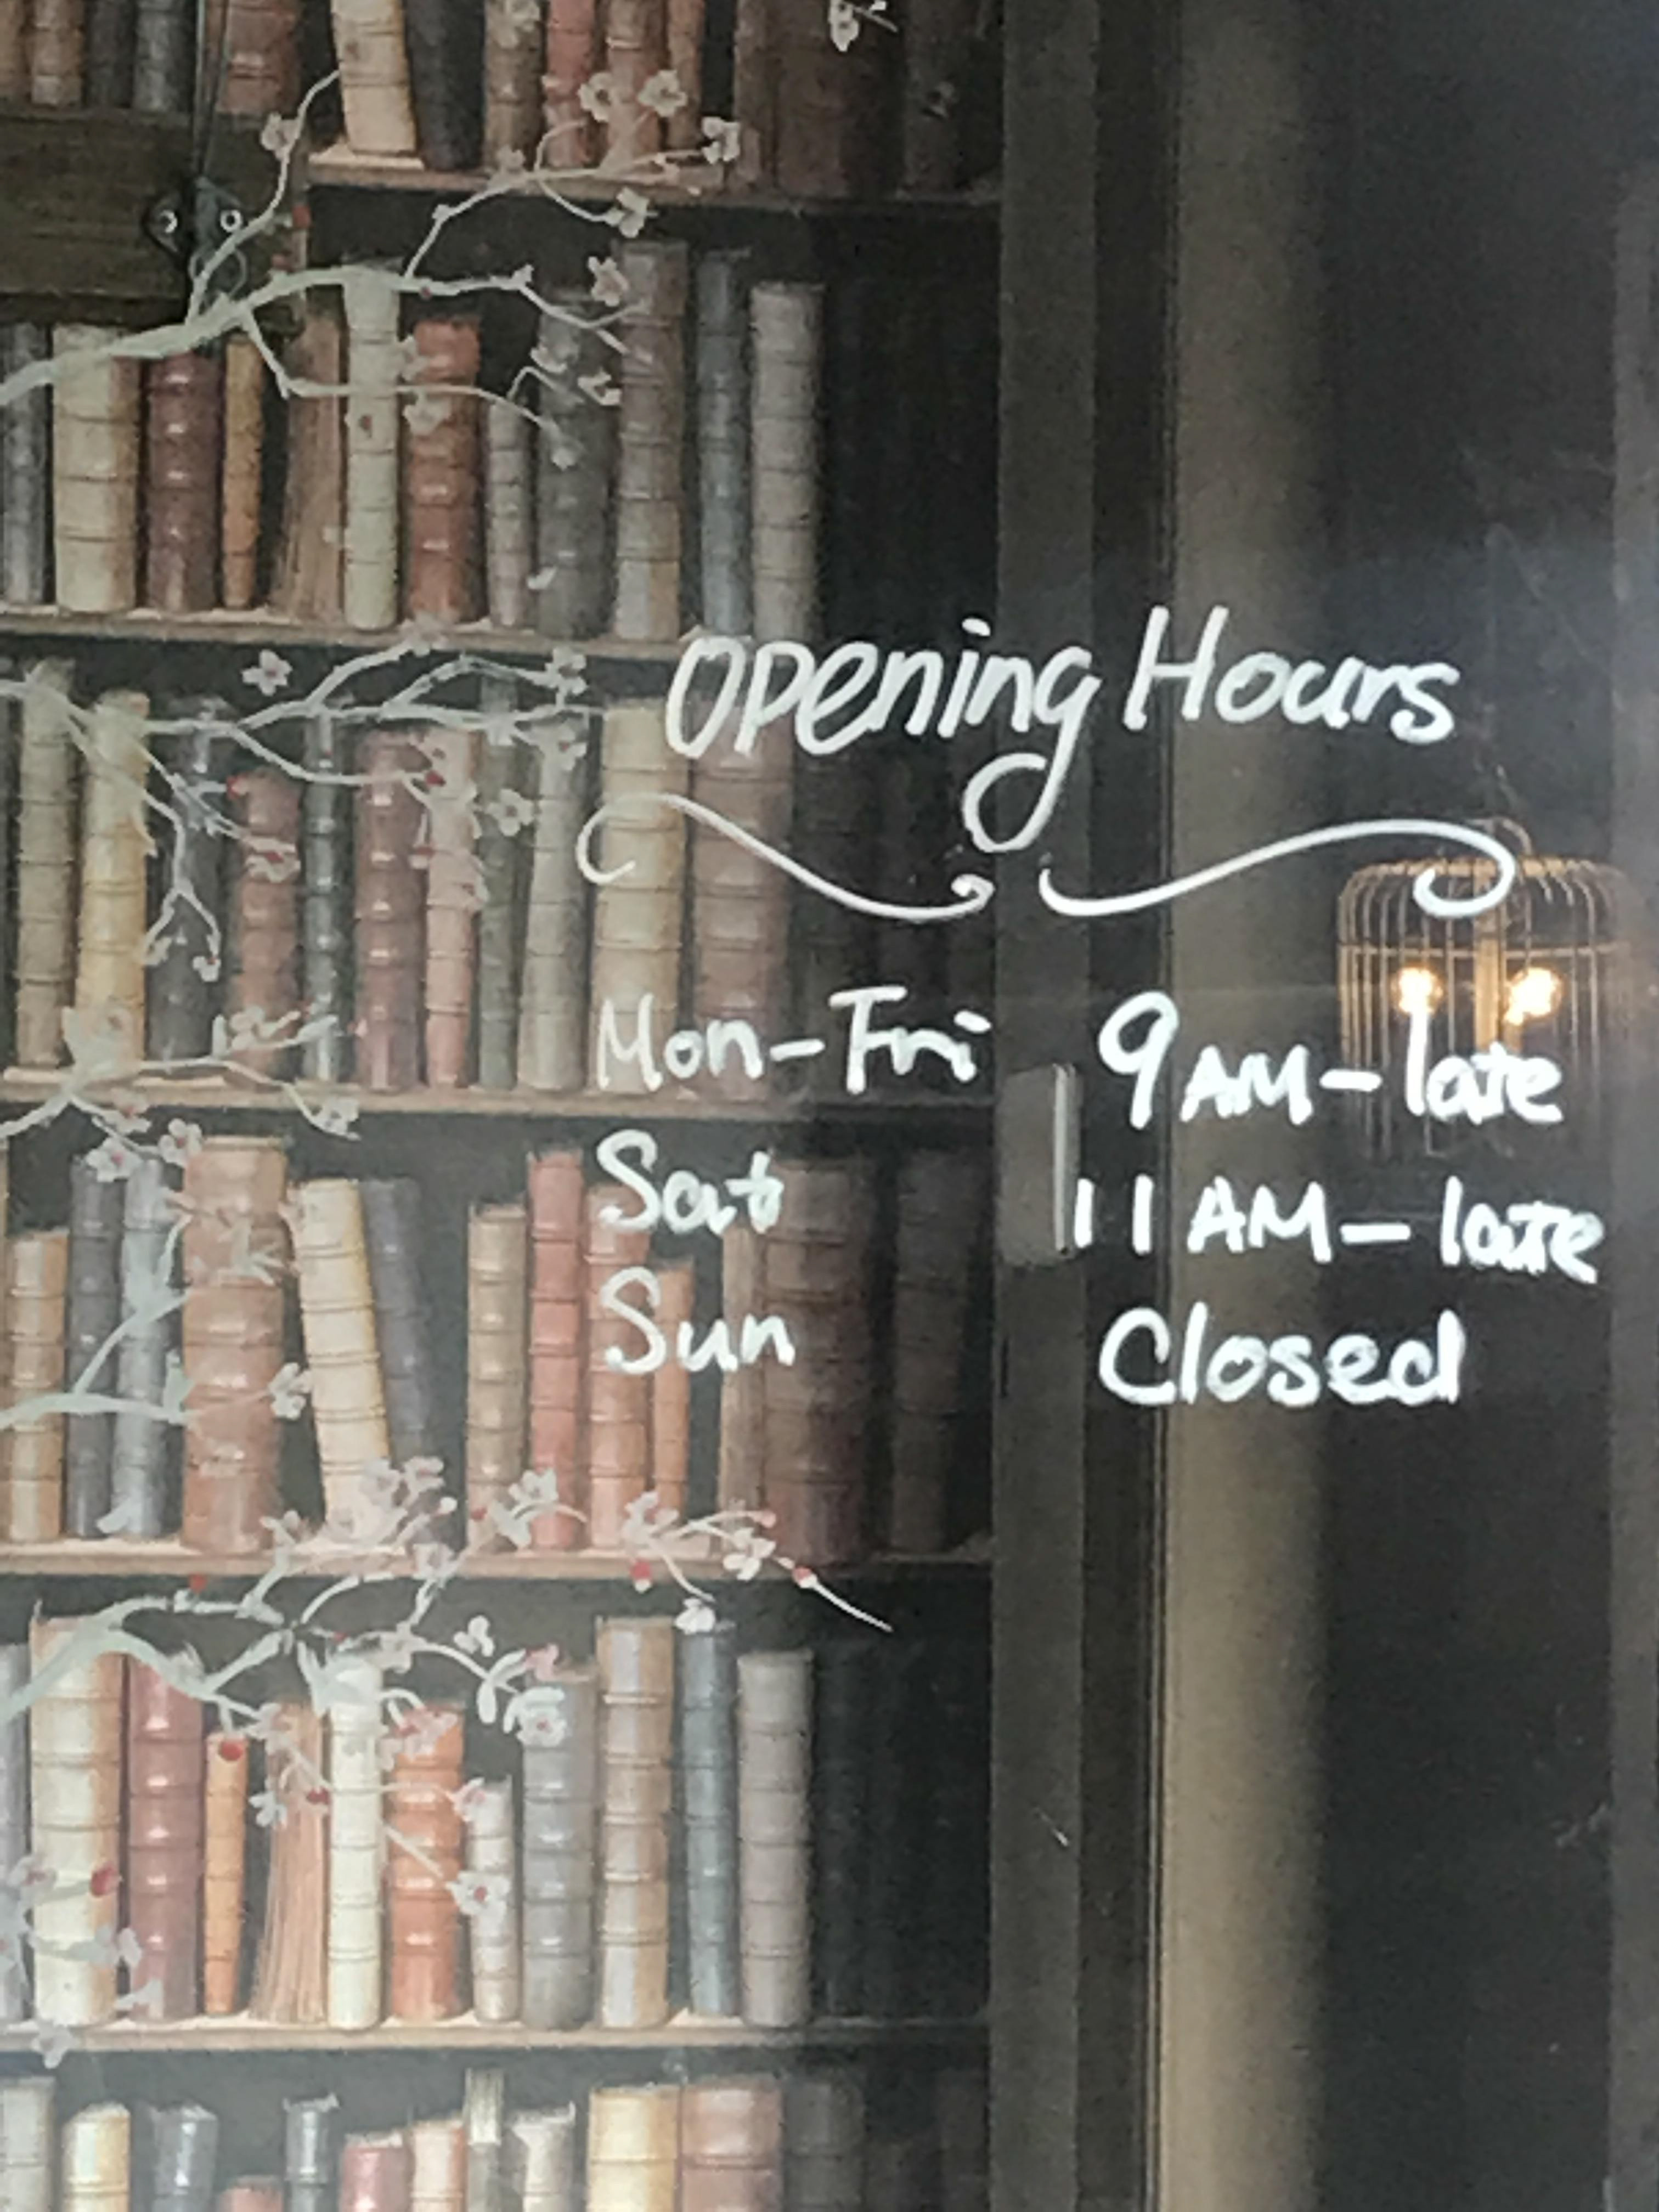 Opening Hours
Mon-Fri 9AM-late
Sat 11AM-late
Sun Closed